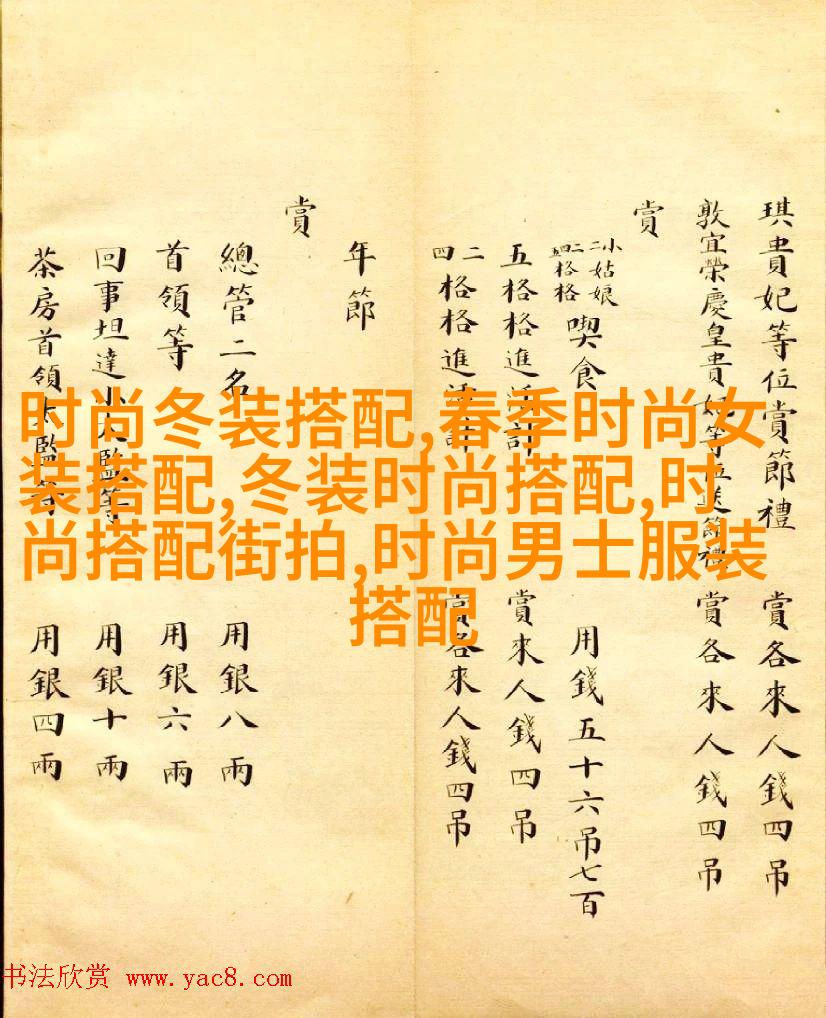 琪貴妃等位賞節禮 賞各來人錢四吊
敦宜榮慶皇貴妃等位送節禮 賞各來人錢四吊
賞
小姑娘
二二格格
四格格
喫食 用錢五十六吊七百
五格格進活計 賞來人錢四吊
二
四
格格進活計 賞各來人錢四吊
年節
賞
總管二名 用銀八兩
首領等 用銀六兩
回事坦達小太監等 用銀十兩
茶房首領太監等 用銀四兩
时尚冬装搭配,春季时尚女
装搭配,冬装时尚搭配,时
尚搭配街拍,时尚男士服装
搭配
书法欣赏 www.yac8.com